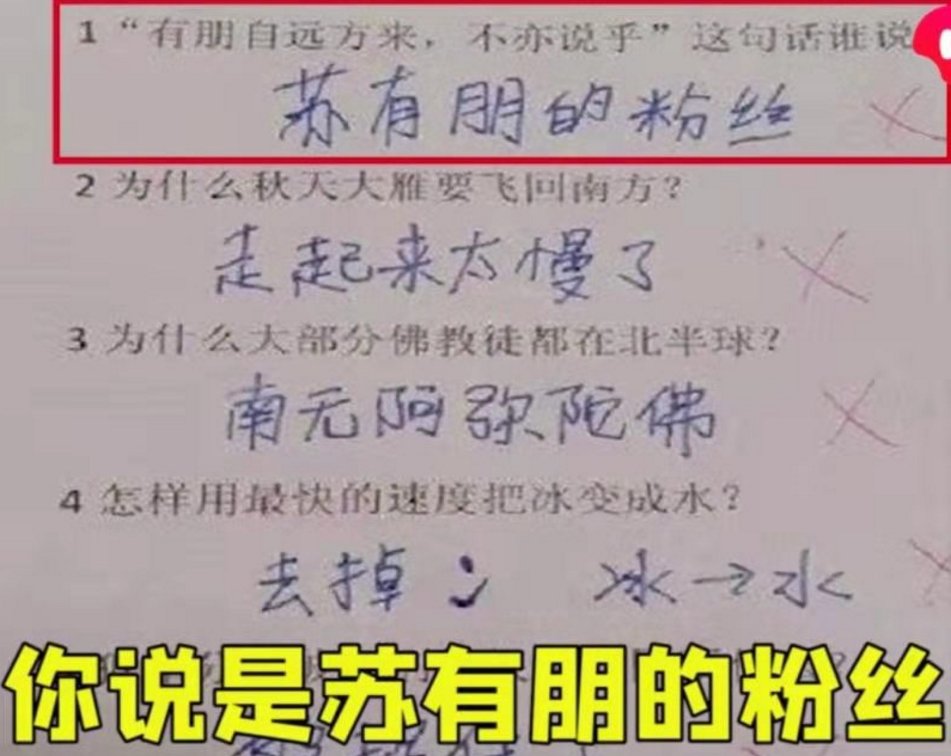 1 “有朋自远方来，不亦说乎”这句话谁说
苏有朋的粉丝
2 为什么秋天大雁要飞回南方？
走起来太慢了
3 为什么大部分佛教徒都在北半球？
南无阿弥陀佛
4 怎样用最快的速度把冰变成水？
去掉冫 冰→水
你说是苏有朋的粉丝